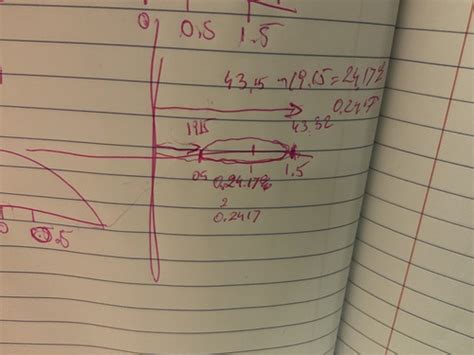 0 0.5 1.5
43,5 - 19.15 = 24.17%
0.2417
1915 43.32
05 0,24.17% 1.5
2
0.2417
0.5